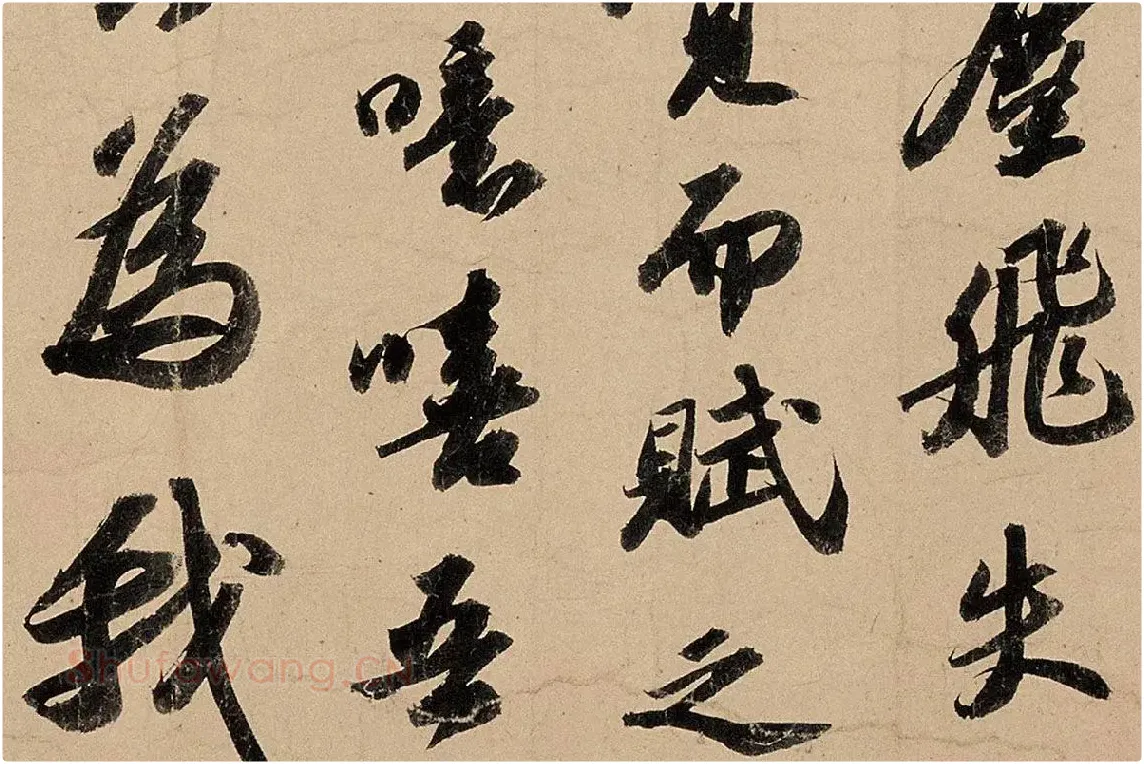 塵飛失
而賦之
嘻吾
為我
Shufawang.CN